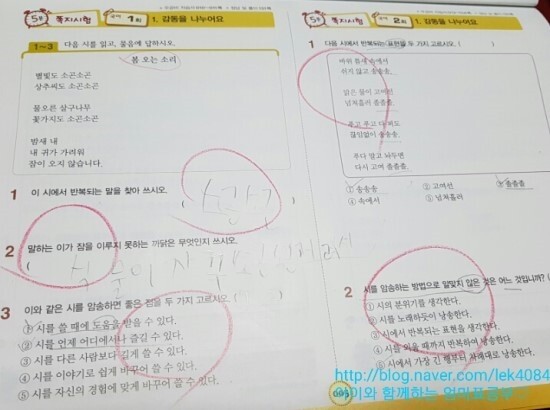 5분 쪽지시험
국어 1회 1. 감동을 나누어요
1~3 다음 시를 읽고, 물음에 답하시오.
봄 오는 소리
별빛도 소곤소곤
상추씨도 소곤소곤
물오른 살구나무
꽃가지도 소곤소곤
밤새 내
내 귀가 가려워
잠이 오지 않습니다.
1 이 시에서 반복되는 말을 찾아 쓰시오.
( )
2 말하는 이가 잠을 이루지 못하는 까닭은 무엇인지 쓰시오.
(
3 이와 같은 시를 암송하면 좋은 점을 두 가지 고르시오. ( )
① 시를 쓸 때에 도움을 받을 수 있다.
② 시를 언제 어디에서나 즐길 수 있다.
③ 시를 다른 사람보다 길게 쓸 수 있다.
④ 시를 이야기로 쉽게 바꾸어 쓸 수 있다.
⑤ 시를 자신의 경험에 맞게 바꾸어 쓸 수 있다.
5분 쪽지시험
국어 2회 1. 감동을 나누어요
1 다음 시에서 반복되는 표현을 두 가지 고르시오. ( )
바위 틈새 속에서
쉬지 않고 송송송.
맑은 물이 고여선
넘쳐흘러 졸졸졸.
푸고 푸고 다 퍼도
끊임없이 송송송.
푸다 말고 놔두면
다시 고여 졸졸졸.
① 송송송 ② 고여선 ③ 졸졸졸
④ 속에서 ⑤ 넘쳐흘러
2 시를 암송하는 방법으로 알맞지 않은 것은 어느 것입니까? (
① 시의 분위기를 생각한다.
② 시를 노래하듯이 낭송한다.
③ 시에서 반복되는 표현을 생각한다.
④ 시를 외울 때까지 반복하여 낭송한다.
⑤ 시에서 가장 긴 행부터 차례대로 낭송한다.
http://blog.naver.com/lek4084